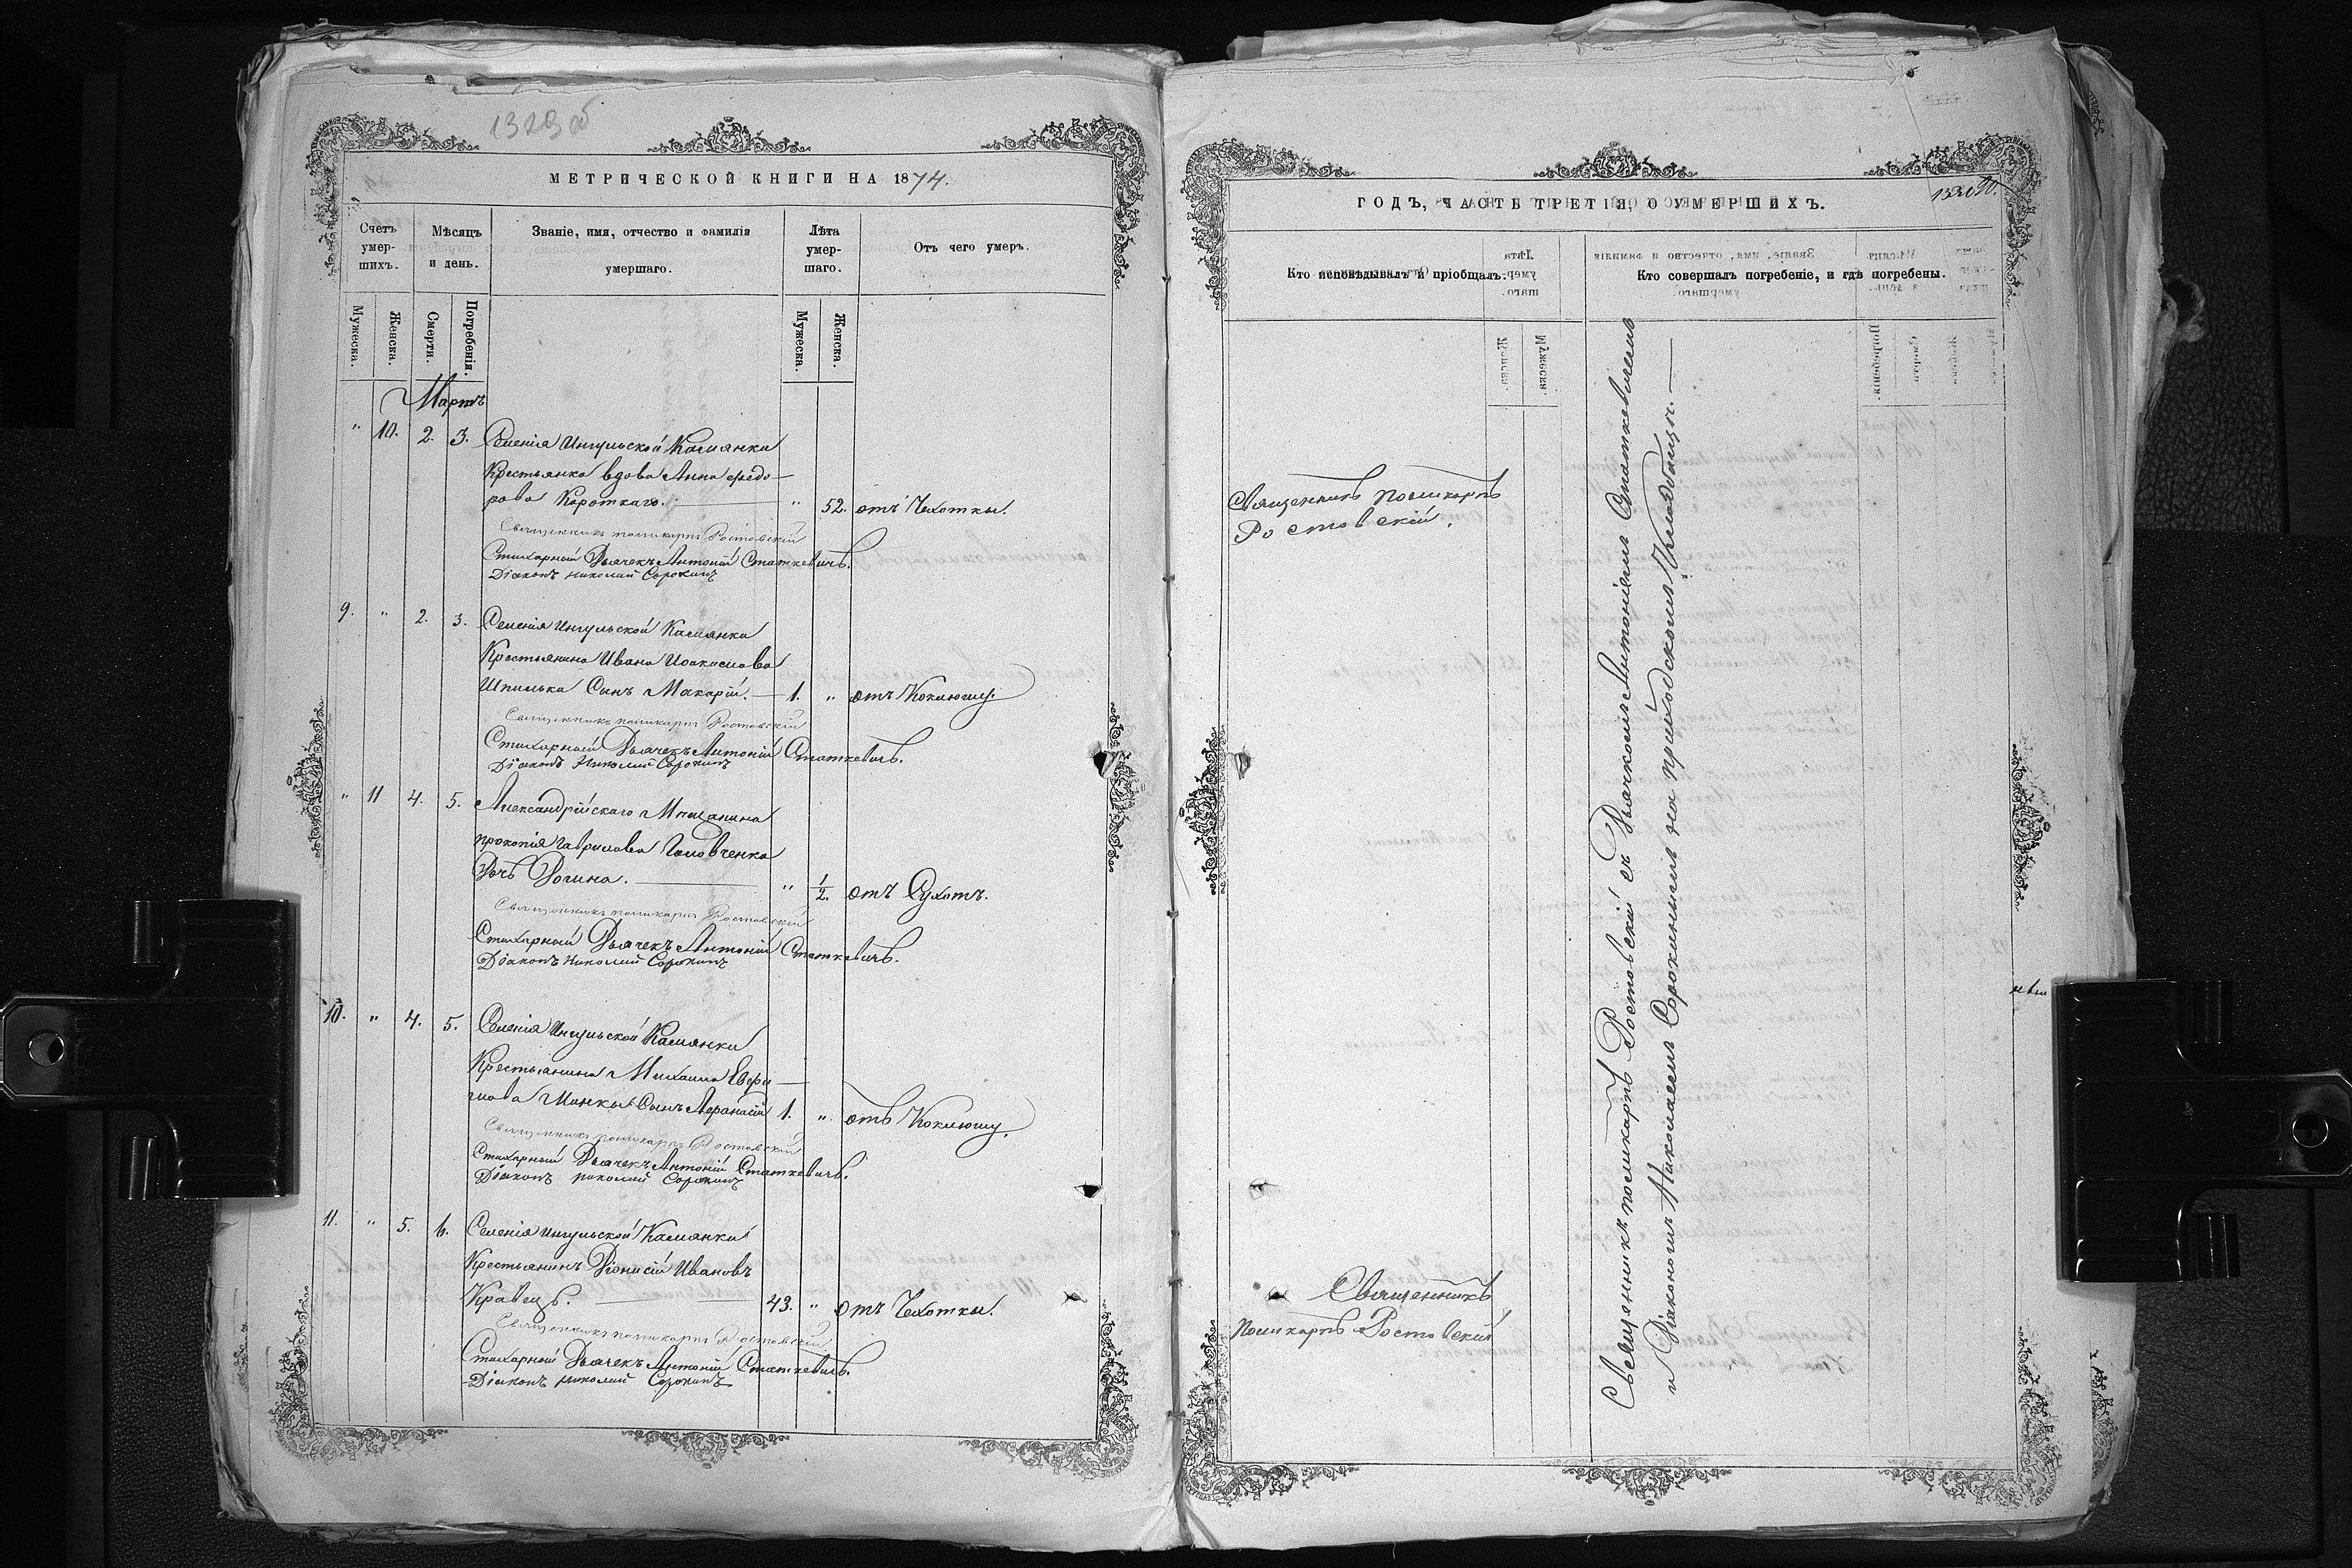 1323 об
МЕТРИЧЕСКОЙ КНИГИ НА 1874.
Счетъ умер- шихъ.
Мѣсяцъ и день.
Званіе, имя, отчество и фамилія умершаго.
Лѣта умер- шаго.
Отъ чего умеръ.
Мужеска.
Женска.
Смерти.
Погребенія.
Мужеска.
Женска.
Мартъ
" 10. 2. 3. Селенія Ингульской Камянки
Крестьянка вдова Анна Ѳедо-
рова Короткаго. — " 52. отъ Чахотки.
Священникъ Поликарпъ Ростовскій
Стихарный Дьячекъ Антоній Статкевичъ.
Діаконъ Николай Сорокинъ
9. " 2. 3. Селенія Ингульской Камянки
Крестьянина Ивана Иоакимова
Шпилька Сынъ Макарій. — 1. " отъ Коклюшу.
Священникъ Поликарпъ Ростовскій
Стихарный Дьячекъ Антоній Статкевичъ.
Діаконъ Николай Сорокинъ
" 11 4. 5. Александрійскаго Мѣщанина
Прокопія Гаврилова Головченка
Дочь . — " 1/2. отъ Сухотъ.
Священникъ Поликарпъ Ростовскій
Стихарный Дьячекъ Антоній Статкевичъ.
Діаконъ Николай Сорокинъ
10. " 4. 5. Селенія Ингульской Камянки
Крестьянина Михаила Евфи-
мова Сынъ Аѳанасій 1. " отъ Коклюшу.
Священникъ Поликарпъ Ростовскій
Стихарный Дьячекъ Антоній Статкевичъ.
Діаконъ Николай Сорокинъ
11. " 5. 6. Селенія Ингульской Камянки
Крестьянинъ Діонисій Ивановъ
Кравецъ. — 43. " отъ Чахотки.
Священникъ Поликарпъ Ростовскій
Стихарный Дьячекъ Антоній Статкевичъ.
Діаконъ Николай Сорокинъ
ГОДЪ, ЧАСТЬ ТРЕТІЯ, О УМЕРШИХЪ.
Кто исповѣдывалъ и пріобщалъ.
Кто совершалъ погребеніе, и гдѣ погребены.
Священникъ Поликарпъ
Ростовскій.
Священникъ
Поликарпъ Ростовскій
Священникъ Поликарпъ Ростовскій съ Дьячкомъ Антоніемъ Статкевичемъ
и Діакономъ Николаемъ Сорокинымъ на приходскомъ Кладбищѣ. —